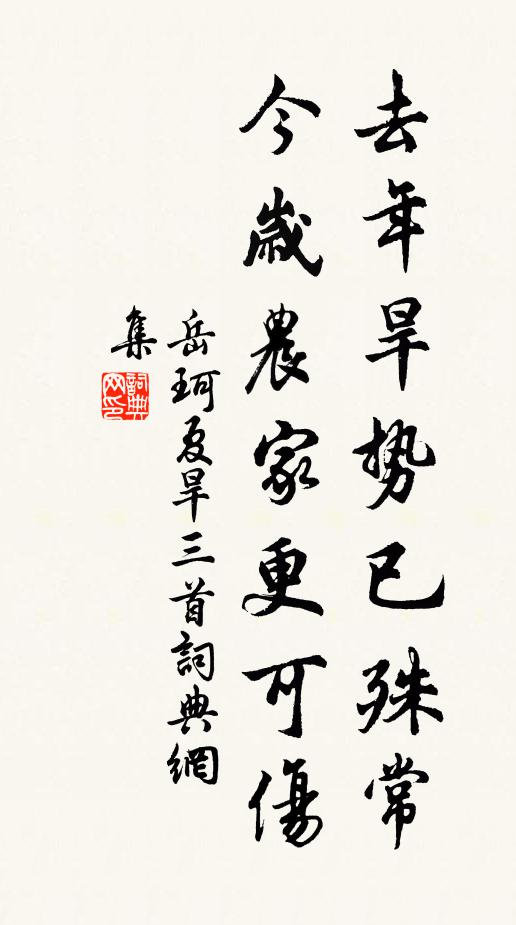 去年旱势已殊常
今歲農家更可傷
岳珂夏旱三首詞典網
集
詞典网印